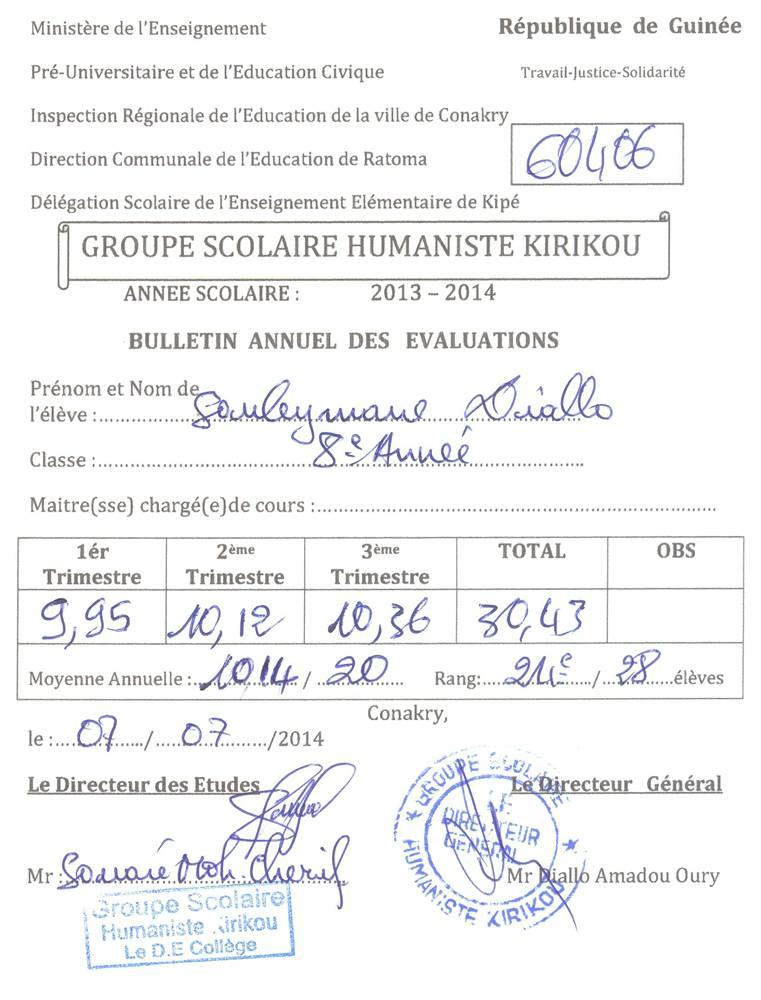 Ministère de l'Enseignement
République de Guinée
Pré-Universitaire et de l'Education Civique
Travail-Justice-Solidarité
Inspection Régionale de l'Education de la ville de Conakry
60406
Direction Communale de l'Education de Ratoma
Délégation Scolaire de l'Enseignement Elémentaire de Kipé
GROUPE SCOLAIRE HUMANISTE KIRIKOU
ANNEE SCOLAIRE : 2013 – 2014
BULLETIN ANNUEL DES EVALUATIONS
Prénom et Nom de
l'élève : Souleymane Diallo
Classe : 8e Année
Maitre(sse) chargé(e)de cours :
1ér Trimestre 2ème Trimestre 3ème Trimestre TOTAL OBS
9,95 10,12 10,36 30,43
Moyenne Annuelle : 10,14 / 20 Rang: 21e / 28 élèves
Conakry,
le : 07 / 07 /2014
Le Directeur des Etudes Le Directeur Général
GROUPE SCOLAIRE HUMANISTE KIRIKOU
LE DIRECTEUR GENERAL
Mr : Moh Cherif Mr Diallo Amadou Oury
Groupe Scolaire
Humaniste Kirikou
Le D.E Collège